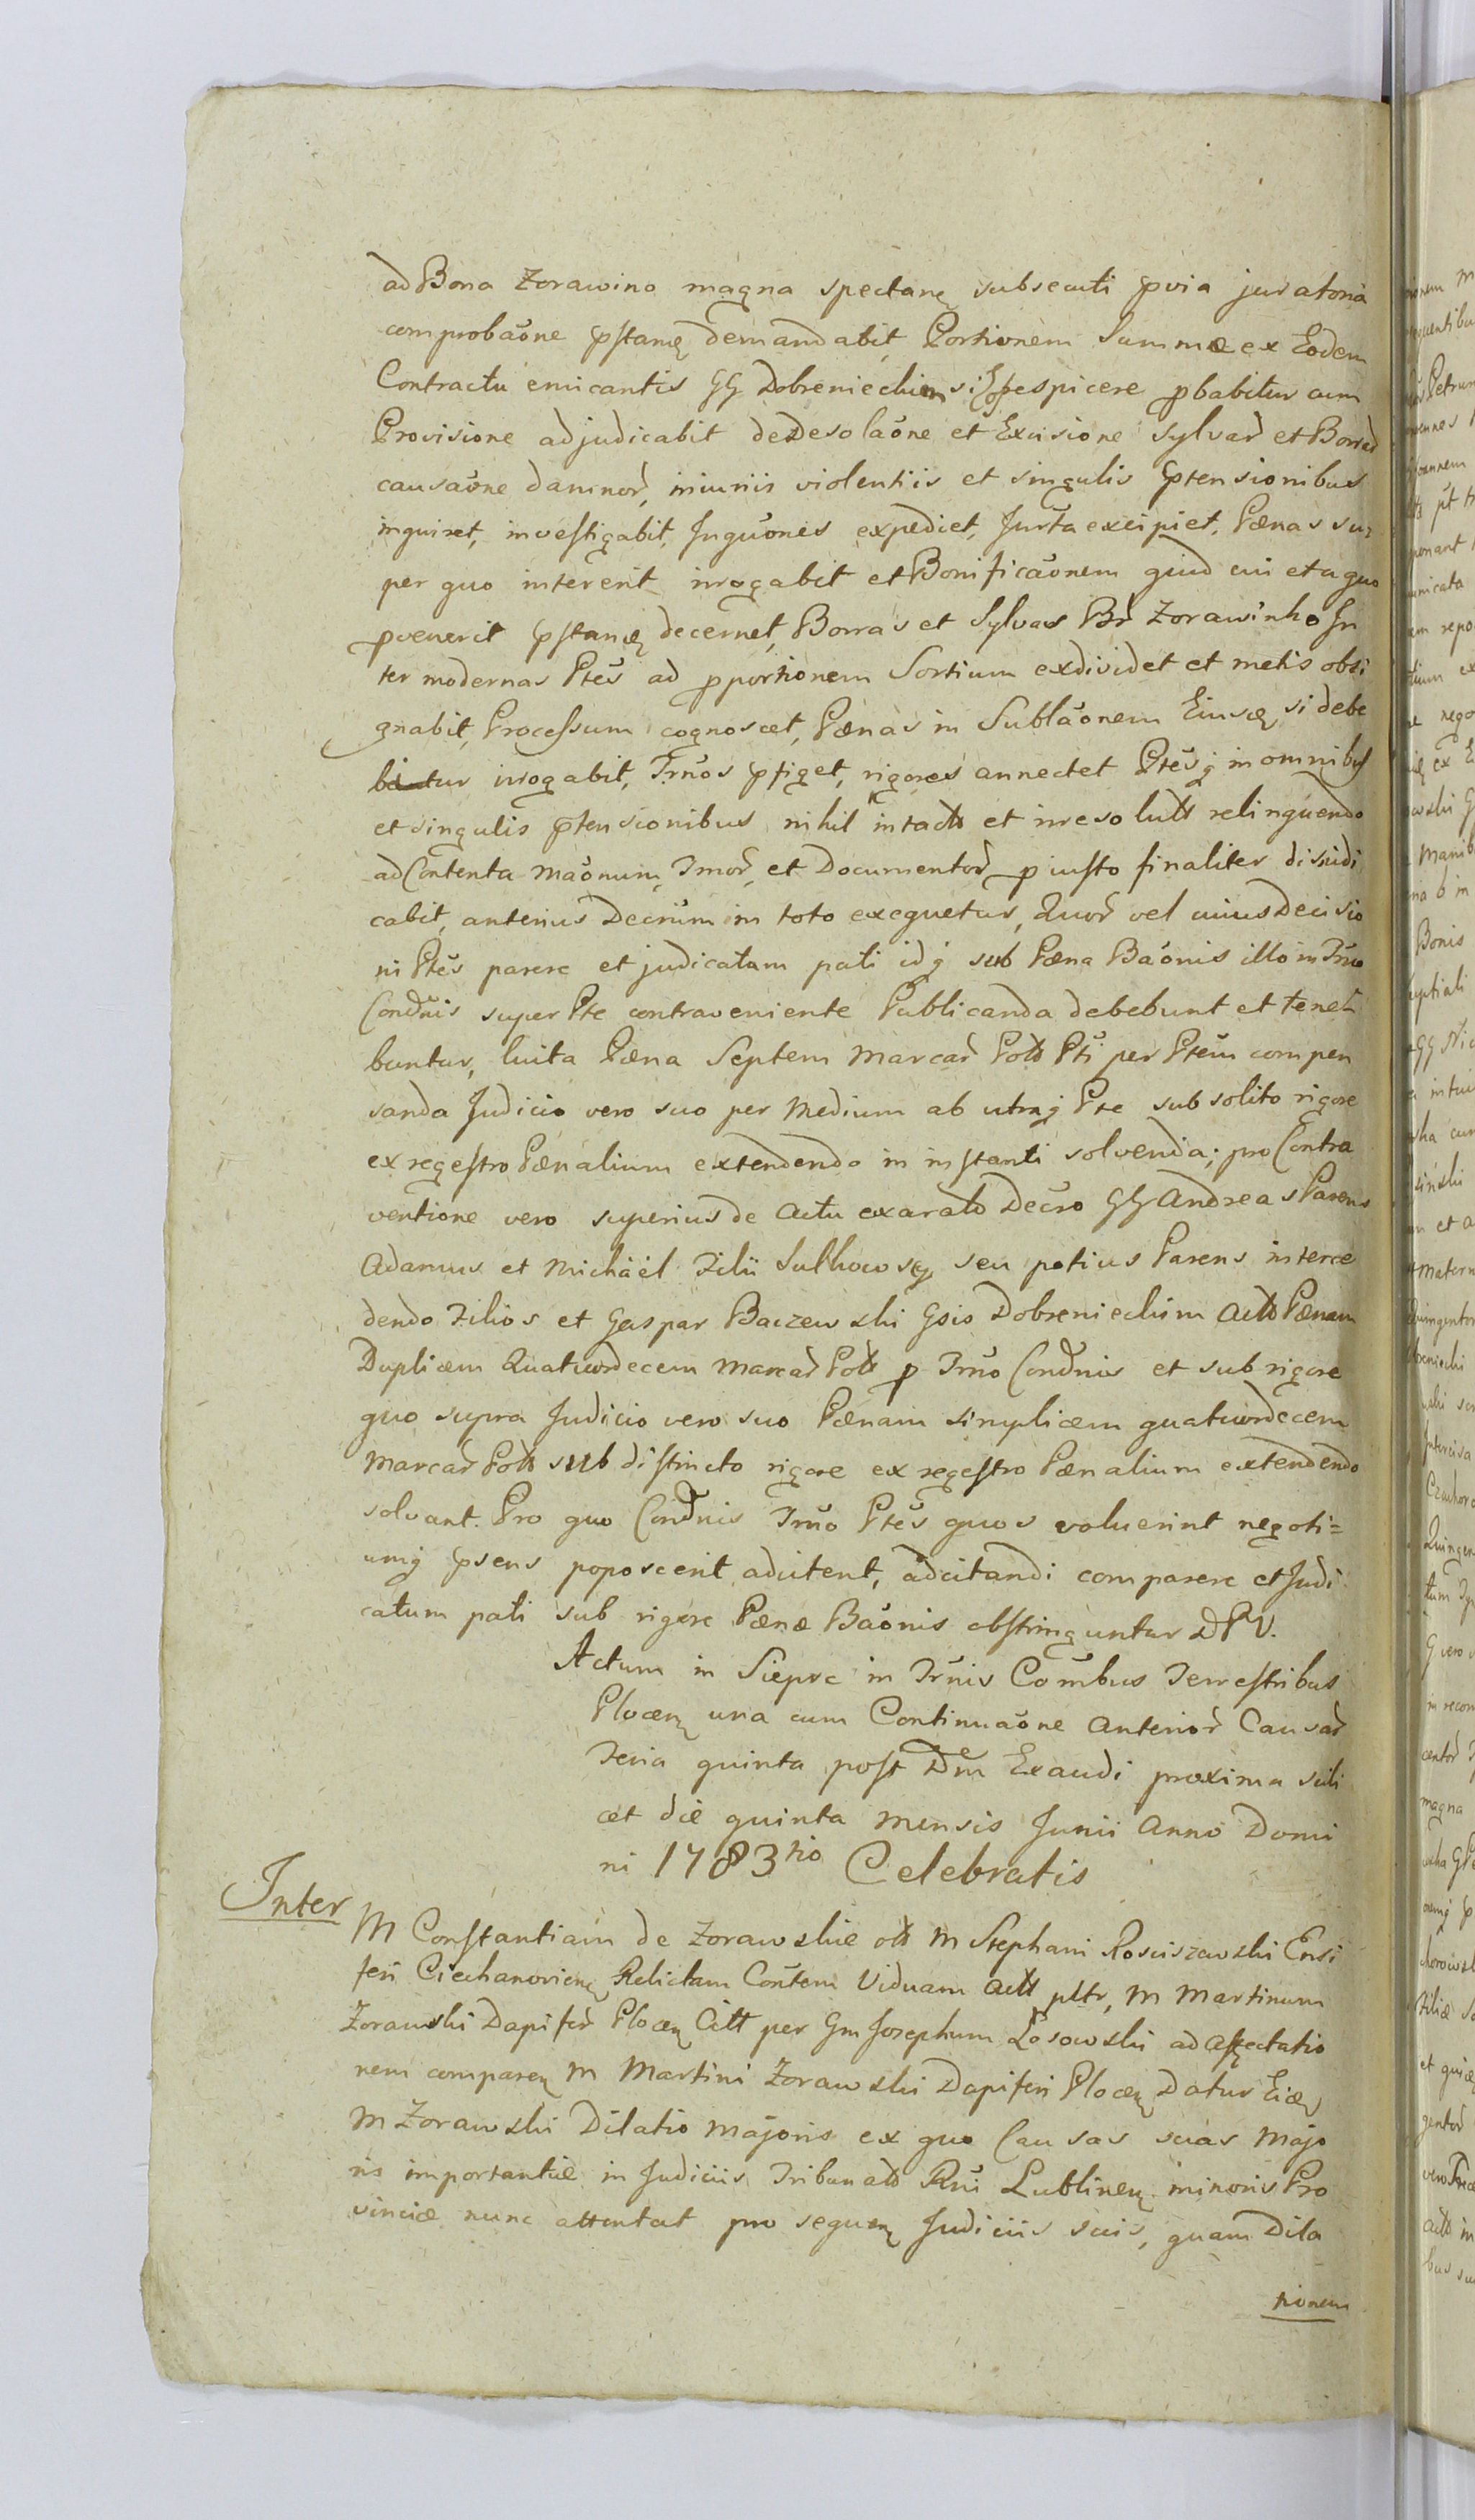 ad Bona Zorawino magna spectanę subsecuti pvia juratoria
comprobaõne pstanę demandabit, Portionem Summæ ex Eodem
Contractu emicantis GG Dobreniecki respicere pbabitur cum
Provisione adjudicabit de Desolaõne et Excisione Sylvar et Borrar
causaõne damnor, iniuriis violentiis et singulis ptensionibus
inquiret, investigabit, Inquõnes expediet, Jurta excipiet, Pænas su=
per quo intererit irrogabit et Bonificaõnem quid cui et a quo
pvenerit pstanę decernet, Borras et Sylvas Br Zorawinko In
ter modernas Ptes ad pportionem Sortium exdividet et metis obsi
gnabit, Processum cognoscet, Pænas in Sublaõnem Eiusę, si debe
bitur irrogabit, Trños pfiget, rigores annectet Ptesq in omnibus
et singulis ptensionibus nihil intacto et irresoluto relinquendo
ad Contenta Maõnum, Imor, et Documentor p iusto finaliter dijudi
cabit, anterius Decrum in toto exequetur, Quor vel cuius Decisio
ni Ptes parere et judicatam pati idq sub Pæna Baõnis illo in Trño
Condnis super Pte contraveniente Publicanda debebunt et tene=
buntur, luita Pæna Septem Marcar Pols Pti per Ptem compen
sanda Judicio vero suo per Medium ab utraq Pte sub solito rigore
ex regestro Pænalium extendendo in instanti solvenda; pro Contra
ventione vero superius de actu exarato Decro GG Andreas Parens
Adamus et Michäel Filii Sulkowsę, seu potius Parens interce
dendo Filios et Gaspar Baczewski Gsis Dobreniecium Actõ Pænam
Duplicem Quatuordecem Marcar Pols p Trño Condnis et sub rigore
quo supra Judicio vero suo Pænam simplicem quatuordecem
Marcar Pols sub distincto rigore ex regestro Pænalium extendendo
solvant. Pro quo Condnis Trño Ptes quos voluerint negoti=
umq psens poposcerit adcitent, adcitandi comparere et Judi
catum pati sub rigore Pænæ Baõnis obstringuntur DPV.
Actum in Sieprc in Trñis Combus Terrestribus
Plocenę una cum Continuaõne anterior Causar
Feria quinta post Dm̃ Exaudi proxima scili
cet die quinta mensis Junii Anno Domi
ni 1783tio Celebratis
Inter
M Constantiam de Zorawskie olt M Stephani Rosciszewski Ensi
feri Ciechanoviensę Relictam Contem Viduam Actt pltr, M Martinum
Zorawski Dapifer Plocenę Citt per Gm Josephum Łosowski ad affectatio
nem comparenę M Martini Zorawski Dapiferi Plocenę Datur Eidę
M Zorawski Dilatio majoris ex quo Causas suas Majo
ris importantiæ in Judiciis Tribunalo Rni Lublinenę minoris Pro
vinciæ nunc attentat pro sequenę Judiciis suis, quam Dila
tionem